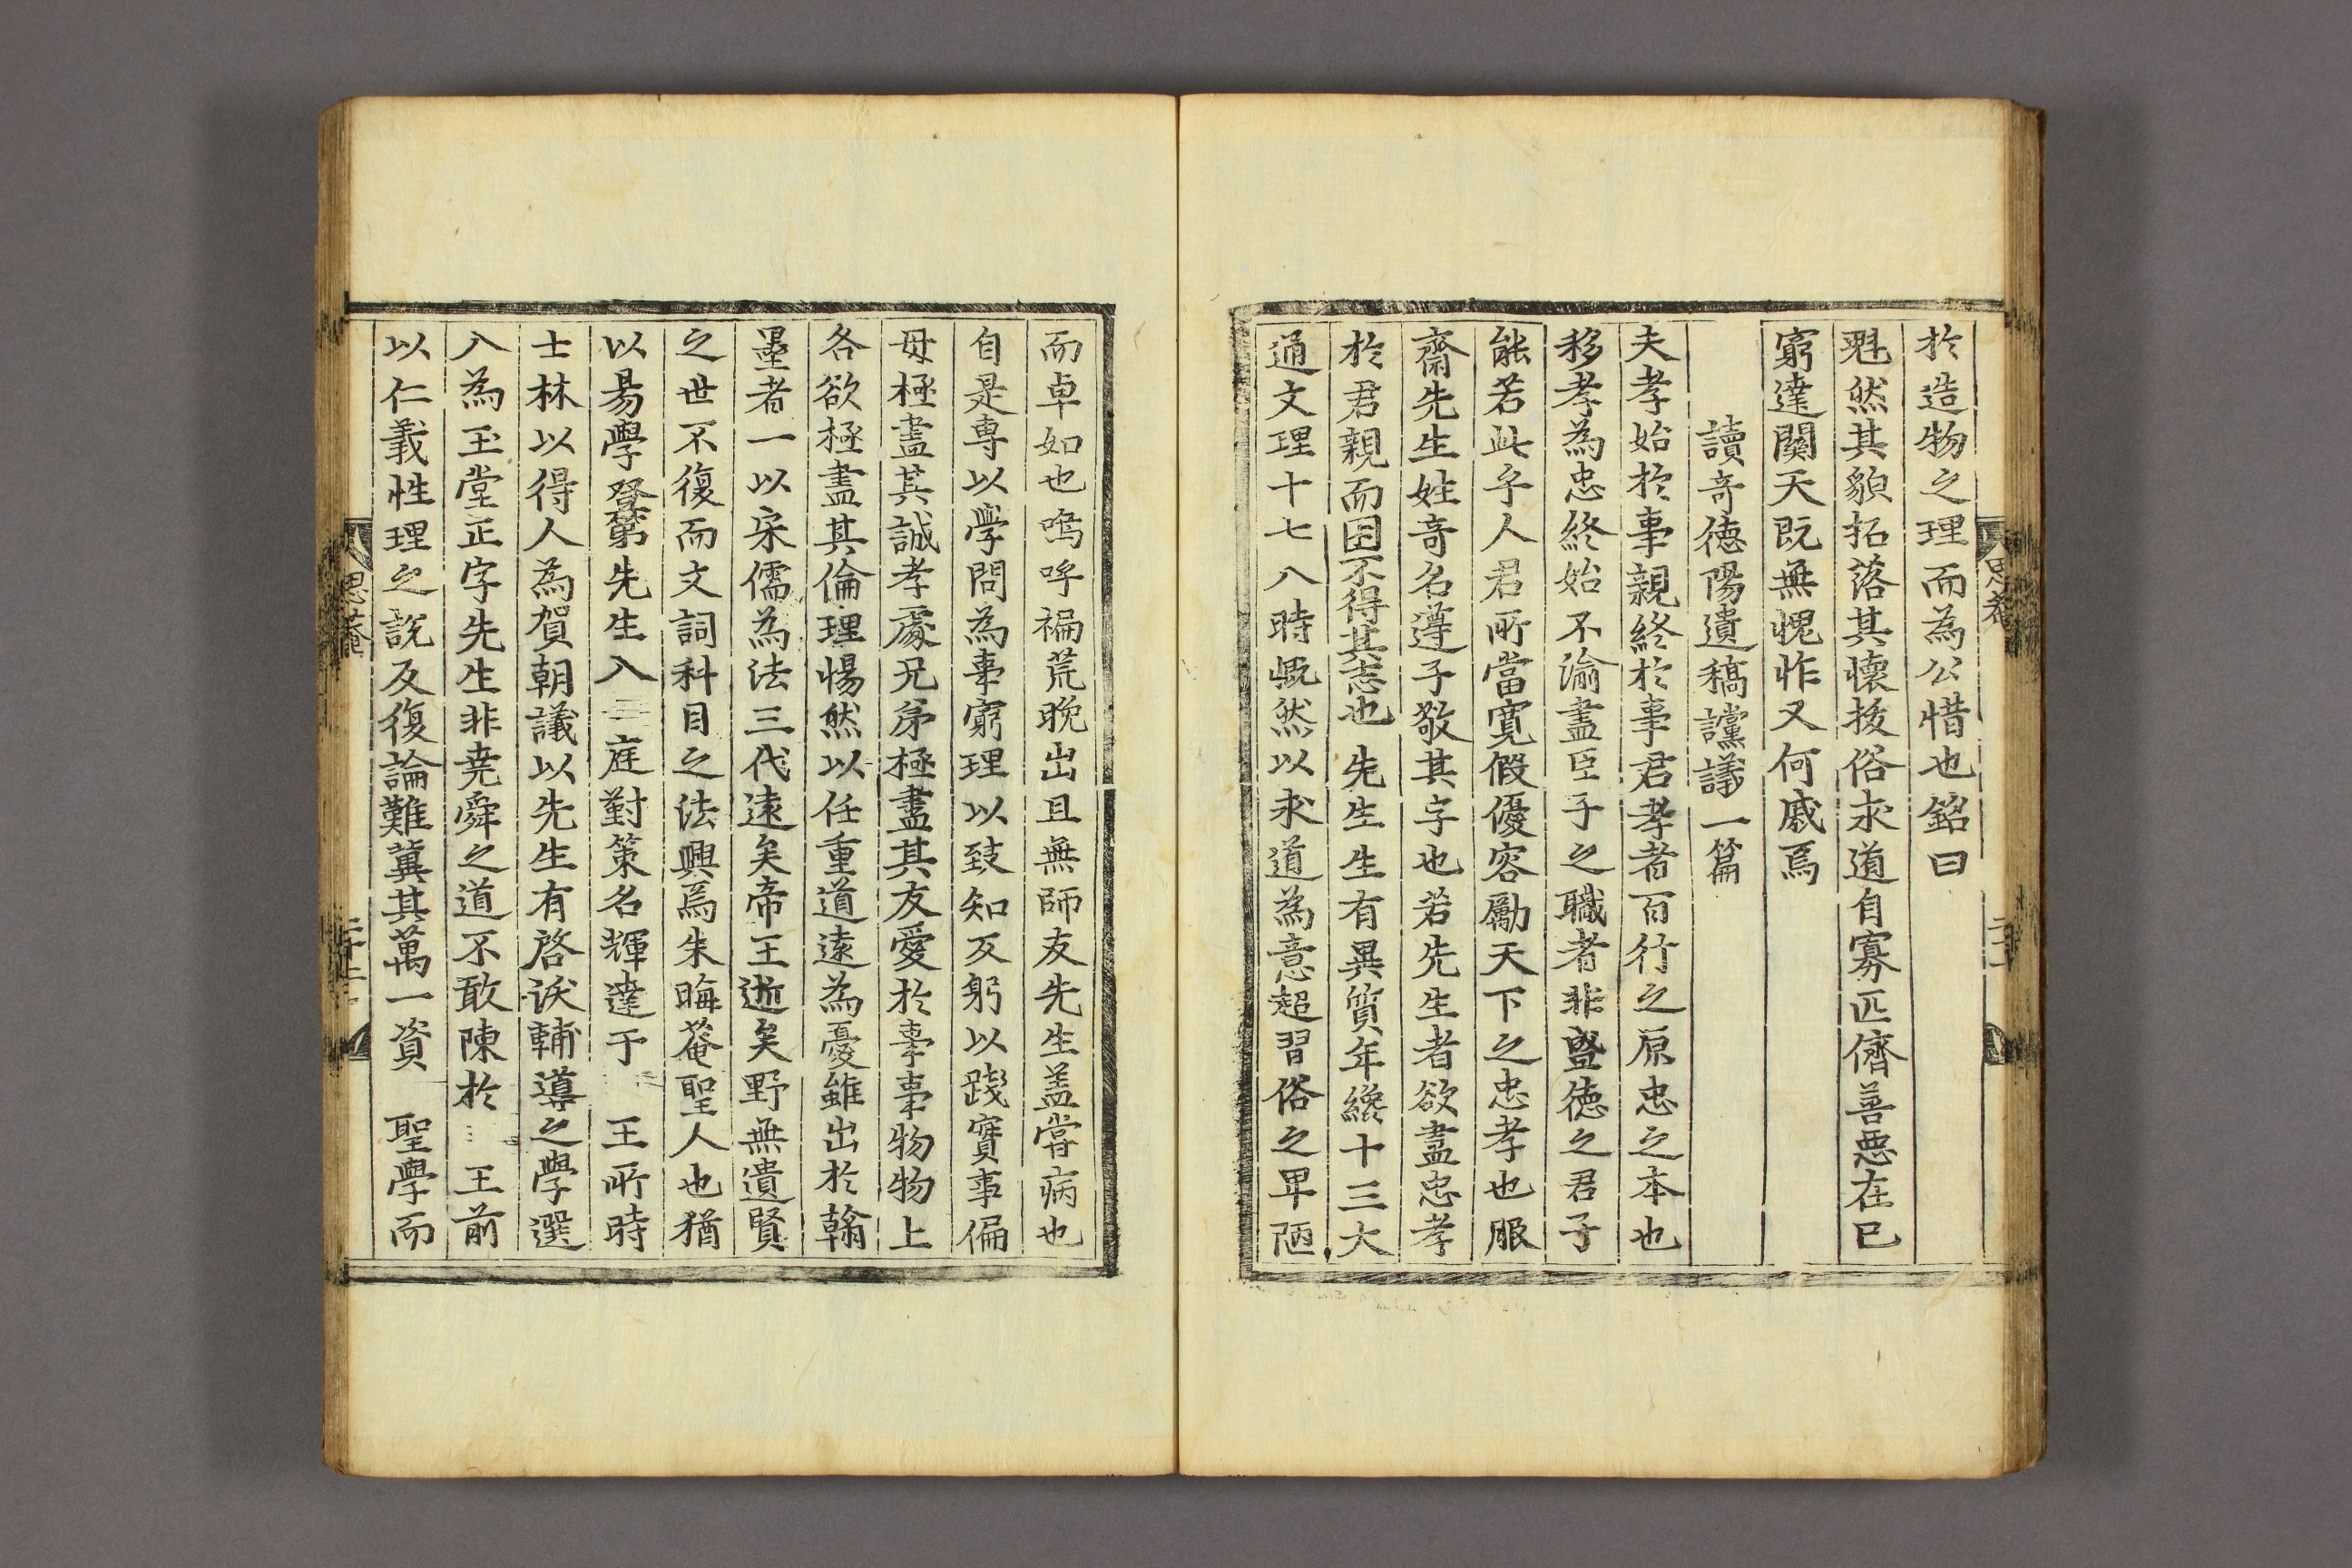 於造物之理而為公惜也銘曰
魁然其貌拓落其懷拔俗求道自寡匹儕善惡在已
窮達關天既無愧怍又何戚焉
讀奇德陽遺稿讜議一篇
夫孝始於事親終於事君孝者百行之原忠之本也
移孝為忠終始不渝盡臣子之職者非盛德之君子
能若此乎人君所當寬假優容勵天下之忠孝也服
齋先生姓奇名遵子敬其字也若先生者欲盡忠孝
於君親而不得其志也先生生有異質年纔十三大
通文理十七八時慨然以求道為意超習俗之卑陋
而卓如也嗚呼褊荒晚出且無師友先生盖嘗病也
自是專以學問為事窮理以致知反躬以踐實事偏
母極盡其誠孝處兄弟極盡其友愛於事事物物上
各欲極盡其倫理惕然以任重道遠為憂雖出於翰
墨者一以宋儒為法三代遠矣帝王逝矣野無遺賢
之世不復而文詞科目之法興焉朱晦菴聖人也猶
以易學登第先生入 庭對策名輝達于 王所時
士林以得人為賀朝議以先生有啓沃輔導之學選
入為玉堂正字先生非堯舜之道不敢陳於 王前
以仁義性理之說反復論難冀其萬一資 聖學而
思菴
思菴